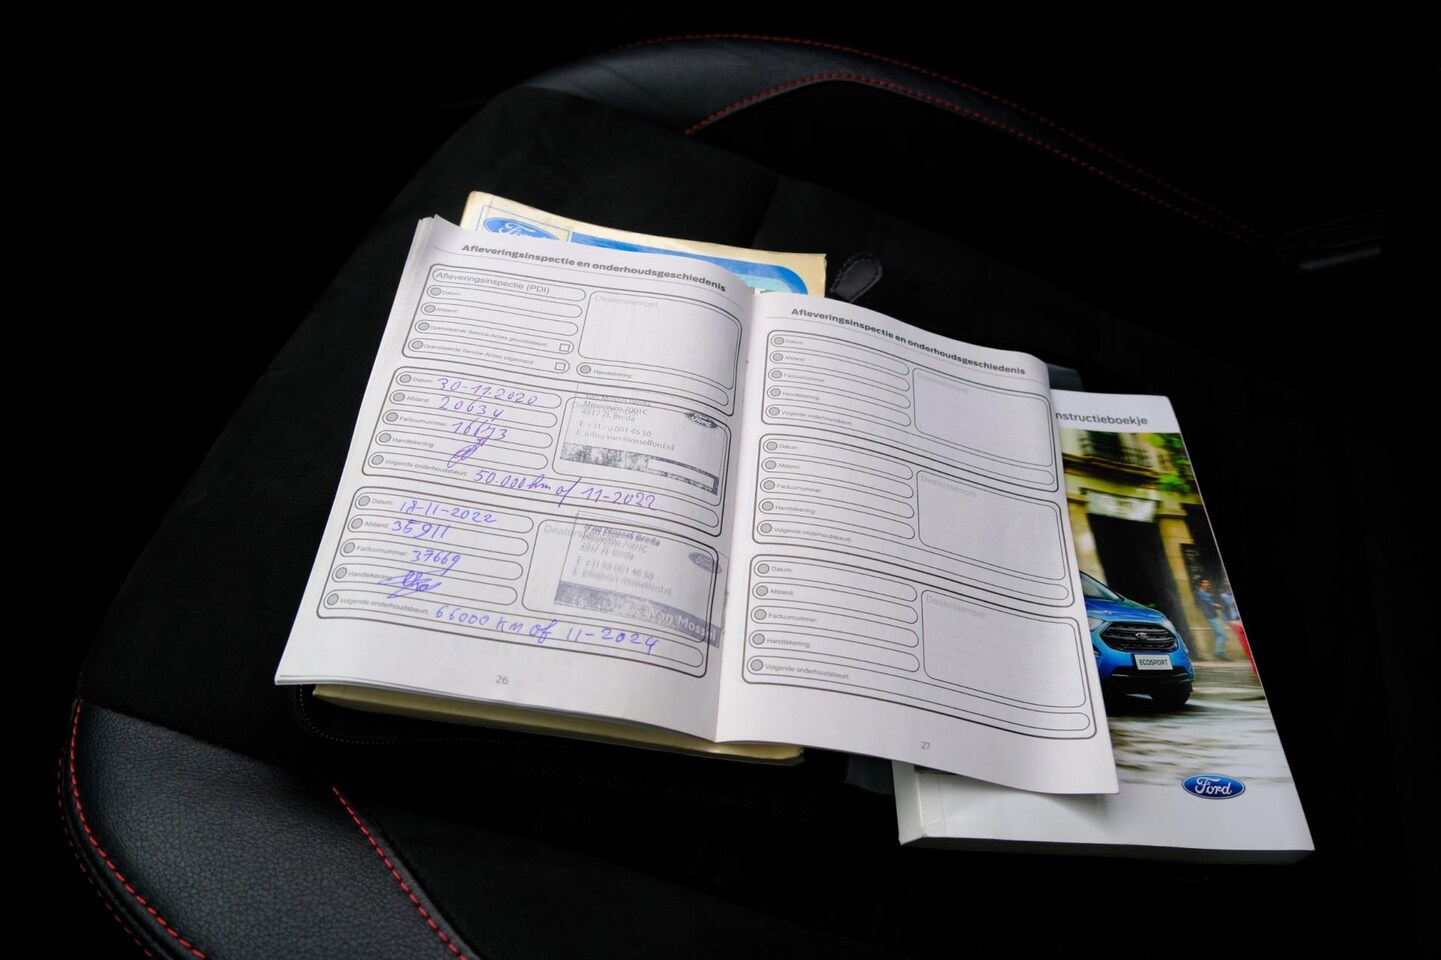 Ford
Afleveringsinspectie en onderhoudsgeschiedenis
Afleveringsinspectie (PDI)
Datum:
Afstand:
Openstaande Service-Acties gecontroleerd:
Openstaande Service-Acties uitgevoerd:
Dealerstempel
Handtekening:
Datum: 30-11-2020
Afstand: 20634
Factuurnummer:
Handtekening:
Volgende onderhoudsbeurt: 50.000 km of 11-2022
4817 ZL Breda
Datum: 18-11-2022
Afstand: 35911
Factuurnummer: 37669
Handtekening:
Volgende onderhoudsbeurt: 66000 KM of 11-2024
Van Mossel Breda
4817 ZL Breda
Van Mossel
26
Afleveringsinspectie en onderhoudsgeschiedenis
Datum:
Afstand:
Factuurnummer:
Handtekening:
Volgende onderhoudsbeurt:
Dealerstempel
Datum:
Afstand:
Factuurnummer:
Handtekening:
Volgende onderhoudsbeurt:
Dealerstempel
Datum:
Afstand:
Factuurnummer:
Handtekening:
Volgende onderhoudsbeurt:
Dealerstempel
27
nstructieboekje
ECOSPORT
Ford